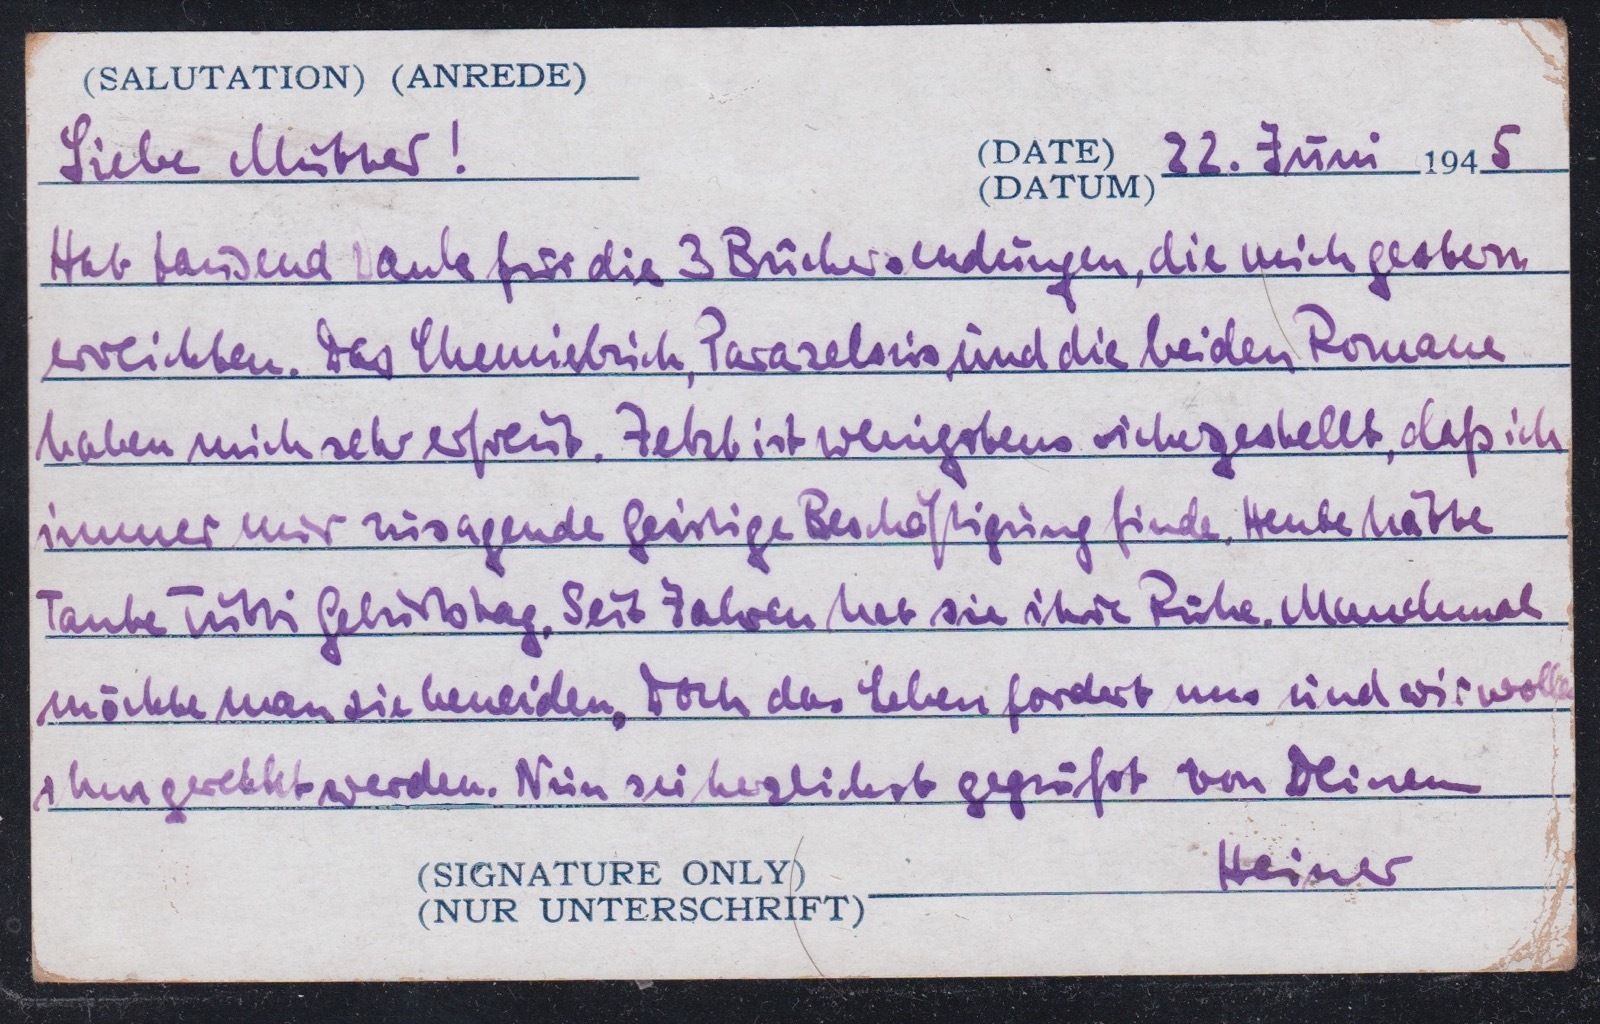 (SALUTATION) (ANREDE)
Liebe Mutter!
(DATE) 22. Juni 1945
(DATUM)
Hab tausend Dank für die 3 Büchersendungen, die mich gestern
erreichten. Das Chemiebuch, Parazelsus und die beiden Romane
haben mich sehr erfreut. Jetzt ist wenigstens sichergestellt, daß ich
immer mir zusagende geistige Beschäftigung finde. Heute hätte
Tante Tutti Geburtstag. Seit Jahren hat sie ihre Ruhe. Manchmal
möchte man sie beneiden. Doch das Leben fordert uns und wir wollen
ihm gerecht werden. Nun sei herzlichst gegrüßt von Deinem
Heiner
(SIGNATURE ONLY)
(NUR UNTERSCHRIFT)